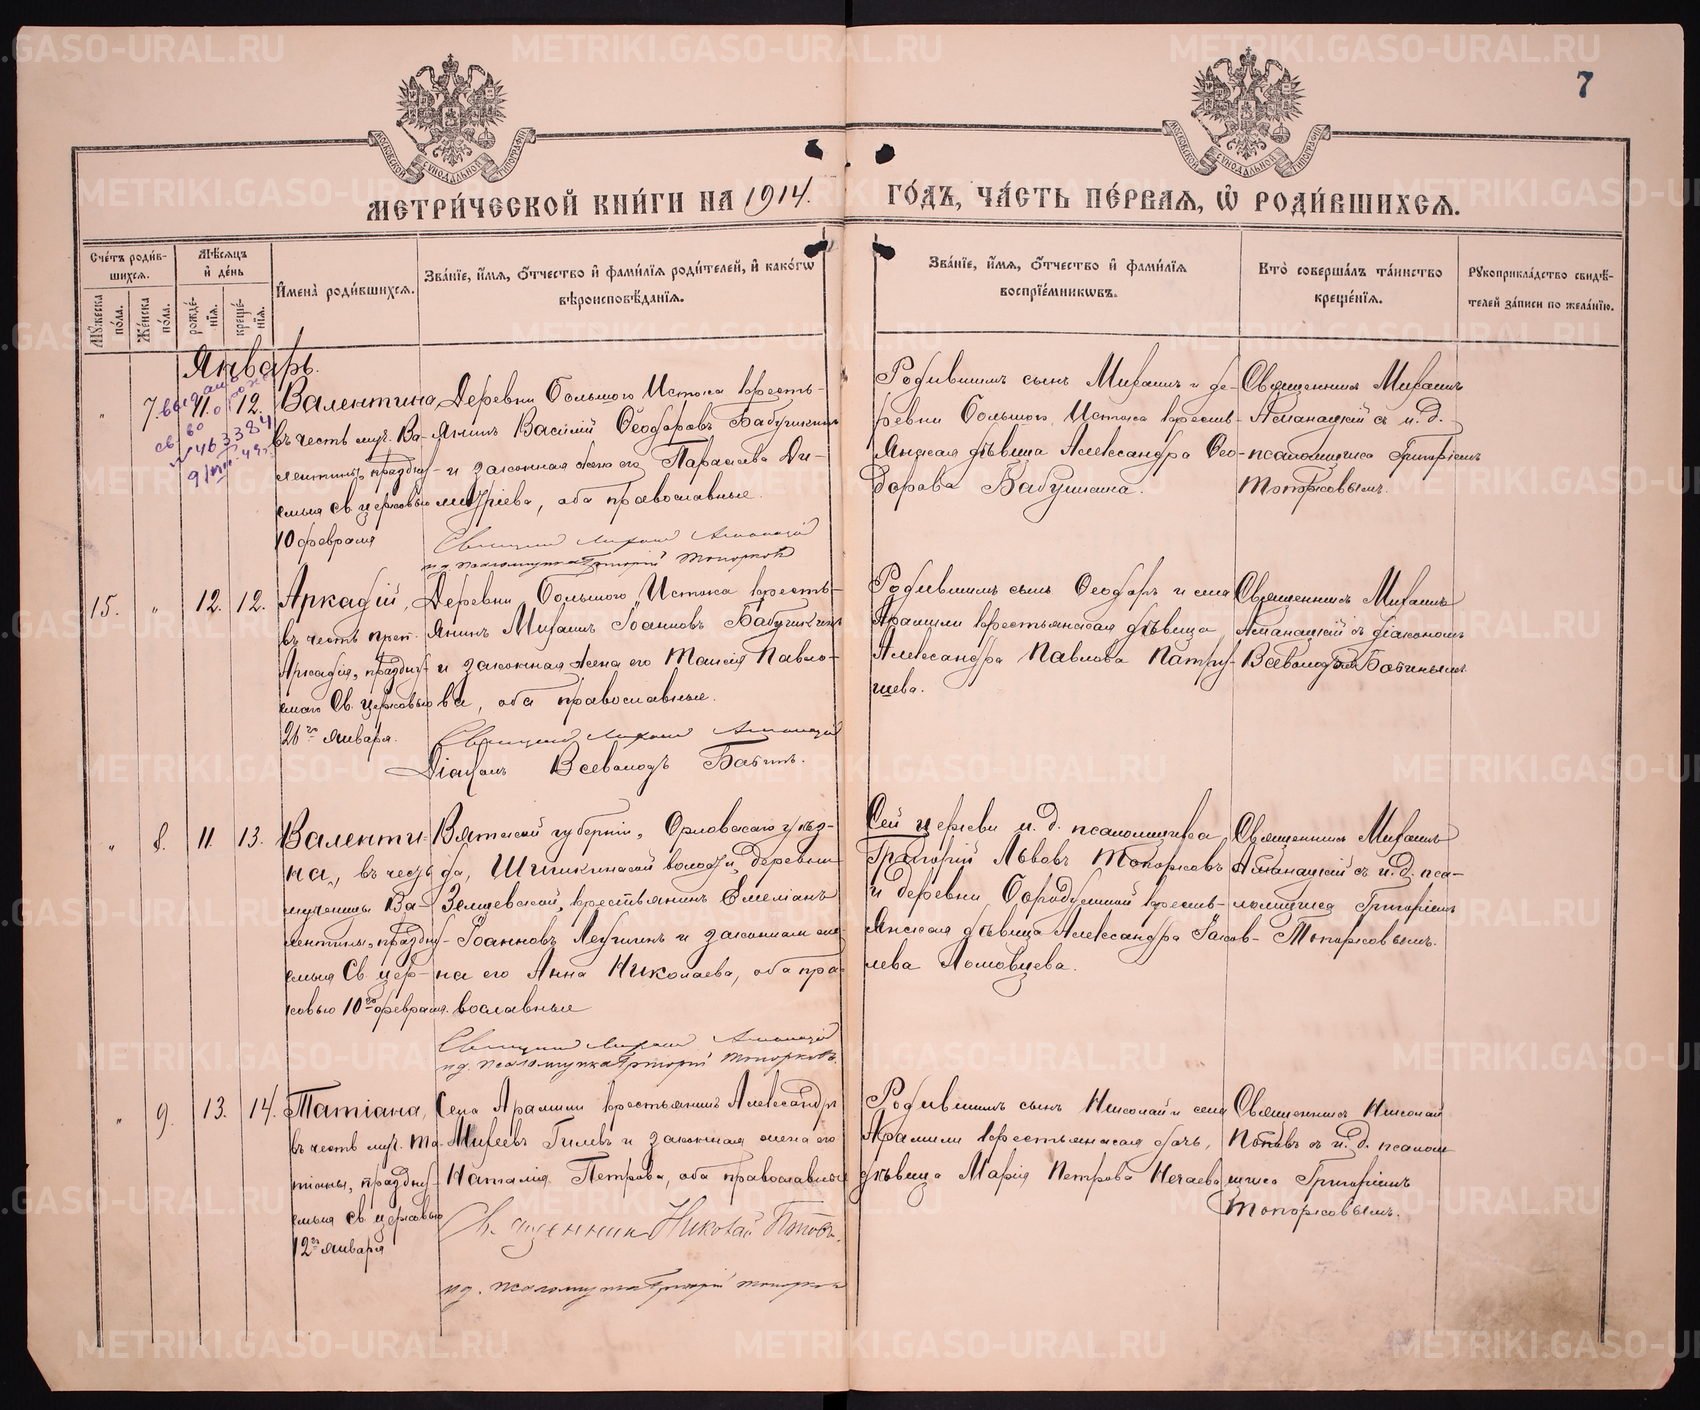 7
МОСКОВСКОЙ СѴНОДАЛЬНОЙ ТИПОГРАФІИ
МОСКОВСКОЙ СѴНОДАЛЬНОЙ ТИПОГРАФІИ
МЕТРИ́ЧЕСКОЙ КНИ́ГИ НА 1914. ГО́ДЪ, ЧА́СТЬ ПЕ́РВАѦ, Ѡ҆ РОДИ́ВШИХСѦ.
Сче́тъ роди́вшихсѧ.
Мꙋ́жеска по́ла.
Же́нска по́ла.
Мѣ́сѧцъ и҆ де́нь
рожде́нїѧ.
креще́нїѧ.
И҆мена̀ роди́вшихсѧ.
Зва́нїе, и҆́мѧ, ѻ҆́тчество и҆ фами́лїѧ роди́телей, и҆ како́гѡ вѣроисповѣ́данїѧ.
Зва́нїе, и҆́мѧ, ѻ҆́тчество и҆ фами́лїѧ воспрїе́мникѡвъ.
Кто̀ соверша́лъ та́инство креще́нїѧ.
Рꙋкоприкла́дство свидѣ́телей за́писи по жела́нїю.
Январь.
" 7. 11. 12.
Валентина,
въ честь муч. Ва-
лентины, праздну-
емыя Св. церковью
10 февраля
Деревни Большого Истока кресть-
янинъ Василій Ѳеодоровъ Бабушкинъ
и законная жена его Параскева Ди-
митріева, оба православные.
Священникъ Михаилъ
и.д. псаломщика Григорій Топорковъ
Родившимъ сынъ Михаилъ и де-
ревни Большого Истока кресть-
янская дѣвица Александра Ѳео-
дорова Бабушкина.
Священникъ Михаилъ
съ и. д.
псаломщика Григоріемъ
Топорковымъ.
15. " 12. 12.
Аркадій,
въ честь преп.
Аркадія, праздну-
емаго Св. церковью
26го января.
Деревни Большого Истока кресть-
янинъ Михаилъ Іоанновъ Бабушкинъ
и законная жена его Таисія Павло-
ва, оба православные.
Священникъ Михаилъ
Діаконъ Всеволодъ Бабинъ.
Родившимъ сынъ Ѳеодоръ и села
Арамили крестьянская дѣвица
Александра Павлова Патру-
шева.
Священникъ Михаилъ
съ діакономъ
Всеволодомъ Бабинымъ.
" 8. 11. 13.
Валенти-
на, въ честь
мученицы Ва-
лентины, праздну-
емыя Св. цер-
ковью 10го февраля.
Вятской губерніи, Орловскаго уѣз-
да, Шишкинской волости, деревни
крестьянинъ Емеліанъ
Іоанновъ и законная же-
на его Анна Николаева, оба пра-
вославные
Священникъ Михаилъ
и.д. псаломщика Григорій Топорковъ.
Сей церкви и. д. псаломщика
Григорій Львовъ Топорковъ
и деревни крестъ-
янская дѣвица Александра Іаков-
лева Ломовцева.
Священникъ Михаилъ
съ и. д. пса-
ломщика Григоріемъ
Топорковымъ.
" 9. 13. 14.
Татіана,
въ честь муч. Та-
тіаны, праздну-
емыя Св. церковью
12го января
Села Арамили крестьянинъ Александръ
Михеевъ Гилевъ и законная жена его
Наталія Петрова, оба православные
Священникъ Николай Поповъ.
и.д. псаломщика Григорій Топорковъ
Родившимъ сынъ Николай и села
Арамили крестьянская дочь,
дѣвица Марія Петрова Нечаева
Священникъ Николай
Поповъ съ и. д. псалом-
щика Григоріемъ
Топорковымъ.
METRIKI.GASO-URAL.RU